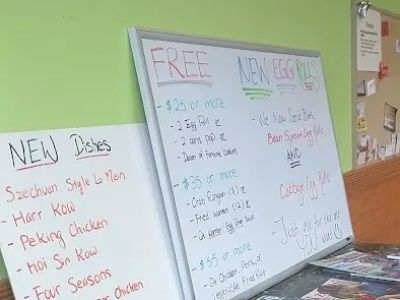 NEW Dishes
Szechuan Style Lo Mein
- Harr Kow
- Peking Chicken
- Hoi Sin Kow
- Four Seasons
Chicken
FREE
- $25 or more
- 2 Egg Roll or
- 2 cans pop or
- Dozen of Fortune Cookies
- $35 or more
- Crab Rangoon (8) or
- Fried Wonton (12) or
- Qt Wonton Egg Drop Soup
- $55 or more
- Qt Chicken, Pork, or
Vegetable Fried Rice
NEW EGG ROLLS
- We Now Serve Both
Bean Sprout Egg Rolls
AND
Cabbage Egg Rolls
- Just ask for the one
you want!